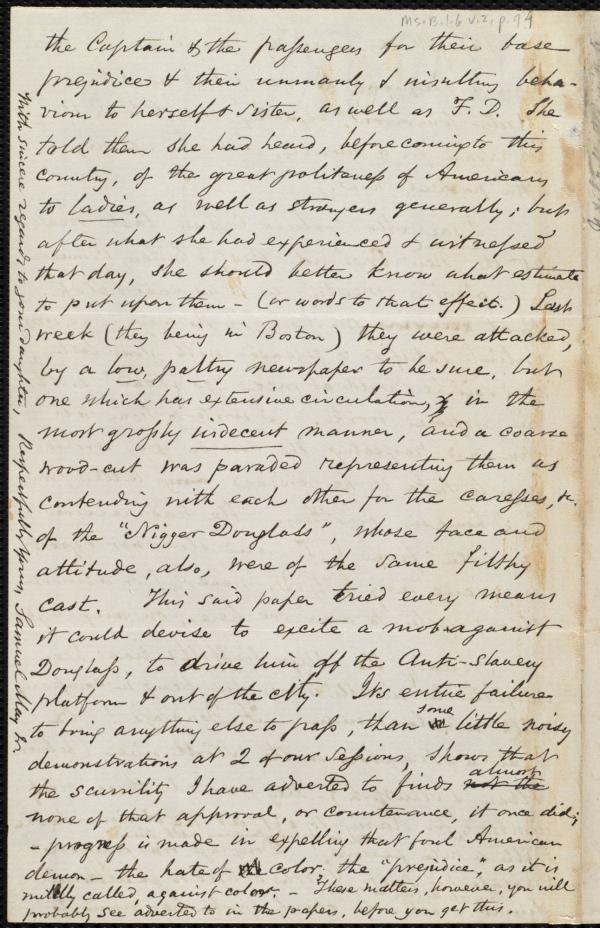 Ms. B. 1.6 v. 2, p. 94
the Captain & the passengers for their base
prejudice & their unmanly & insulting beha-
viour to herself & sister, as well as F. D. She
told them she had heard, before coming to this
country, of the great politeness of Americans
to ladies, as well as strangers generally; but
after what she had experienced & witnessed
that day, she should better know what estimate
to put upon them – (or words to that effect.) Last
week (they being in Boston) they were attacked,
by a low, paltry newspaper to be sure, but
one which has extensive circulation, & in the
most grossly indecent manner, and a coarse
wood-cut was paraded representing them as
contending with each other for the caresses, &c.
of the "Nigger Douglass", whose face and
attitude, also, were of the same filthy
cast. This said paper tried every means
it could devise to excite a mob against
Douglass, to drive him off the Anti-Slavery
platform & out of the city. Its entire failure
to bring anything else to pass, than some little noisy
demonstrations at 2 of our sessions, shows that
the scurrility I have adverted to finds not the almost
none of that approval, or countenance, it once did;
– progress is made in expelling that foul American
demon – the hate of color, the "prejudice", as it is
mildly called, against color. – These matters, however, you will
probably see adverted to in the papers, before you get this.
With sincere regards to your daughter, Respectfully yours, Samuel May Jr